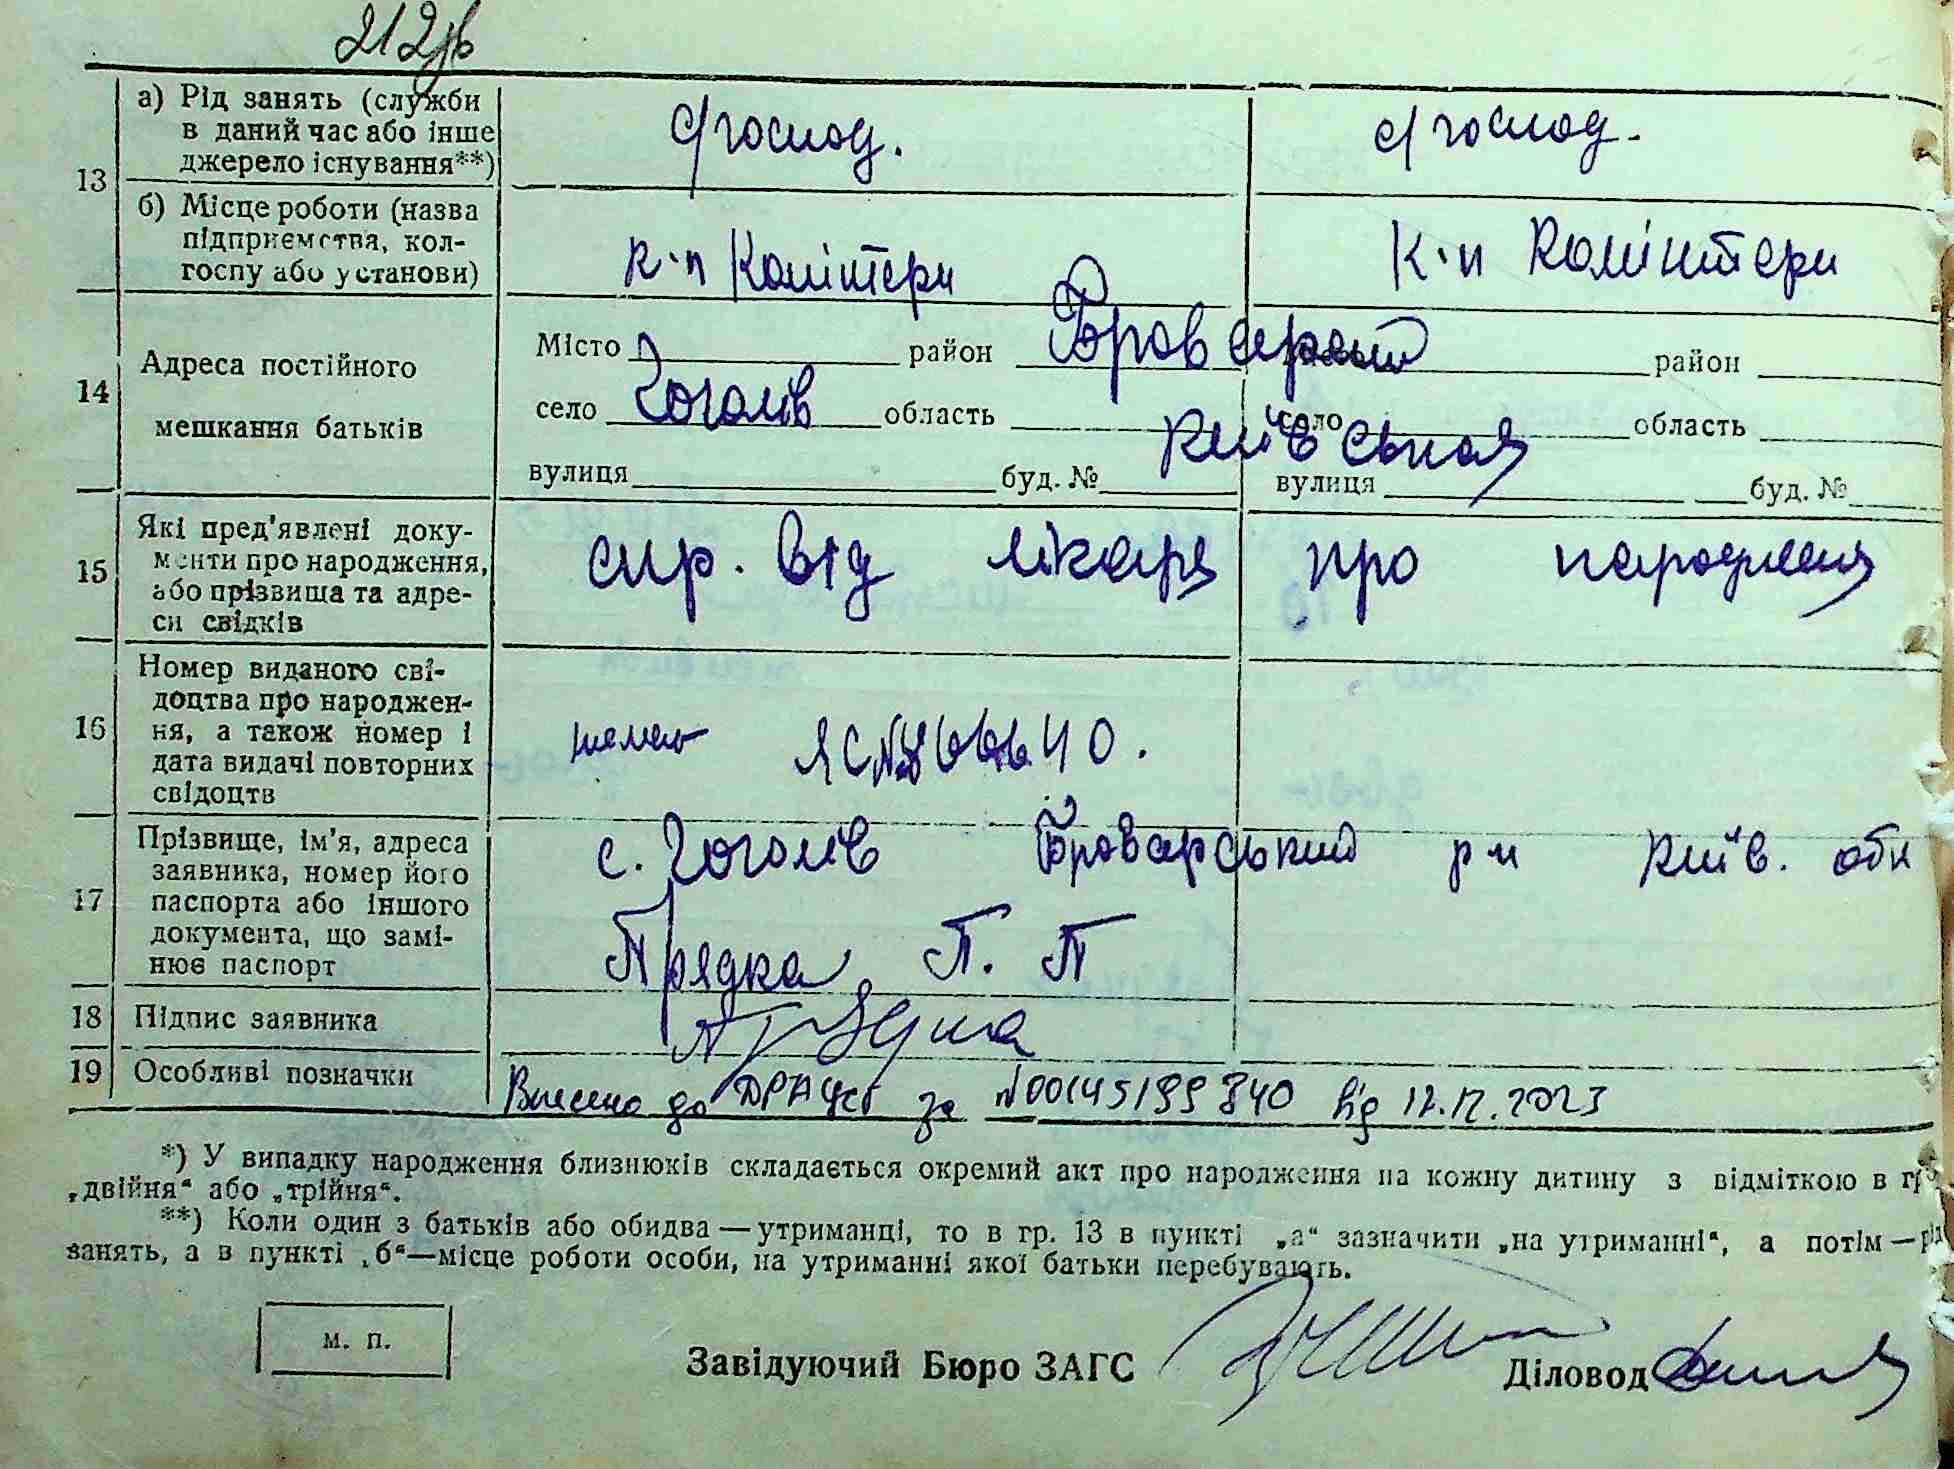 212зв
13 а) Рід занять (служби
в даний час або інше
джерело існування**)
с/господ. с/господ.
б) Місце роботи (назва
підприємства, кол-
госпу або установи)
к-п Комінтерн к-п Комінтерн
14 Адреса постійного
мешкання батьків
Місто район Броварский район
село Гоголів область Київська село область
вулиця буд. № вулиця буд. №
15 Які пред'явлені доку-
менти про народження,
або прізвища та адре-
си свідків
спр. від лікаря про народження
16 Номер виданого сві-
доцтва про народжен-
ня, а також номер і
дата видачі повторних
свідоцтв
17 Прізвище, ім'я, адреса
заявника, номер його
паспорта або іншого
документа, що замі-
нює паспорт
с. Гоголів Броварський р-н Київ. обл
Прядка П. П
18 Підпис заявника
19 Особливі позначки
Внесено до ДРАЦСГ за №00145199840 від 12.12.2023
*) У випадку народження близнюків складається окремий акт про народження на кожну дитину з відміткою в гр
„двійня“ або „трійня“.
**) Коли один з батьків або обидва — утриманці, то в гр. 13 в пункті „а“ зазначити „на утриманні“, а потім — рід
занять, а в пункті „б“—місце роботи особи, на утриманні якої батьки перебувають.
м. п.
Завідуючий Бюро ЗАГС Діловод